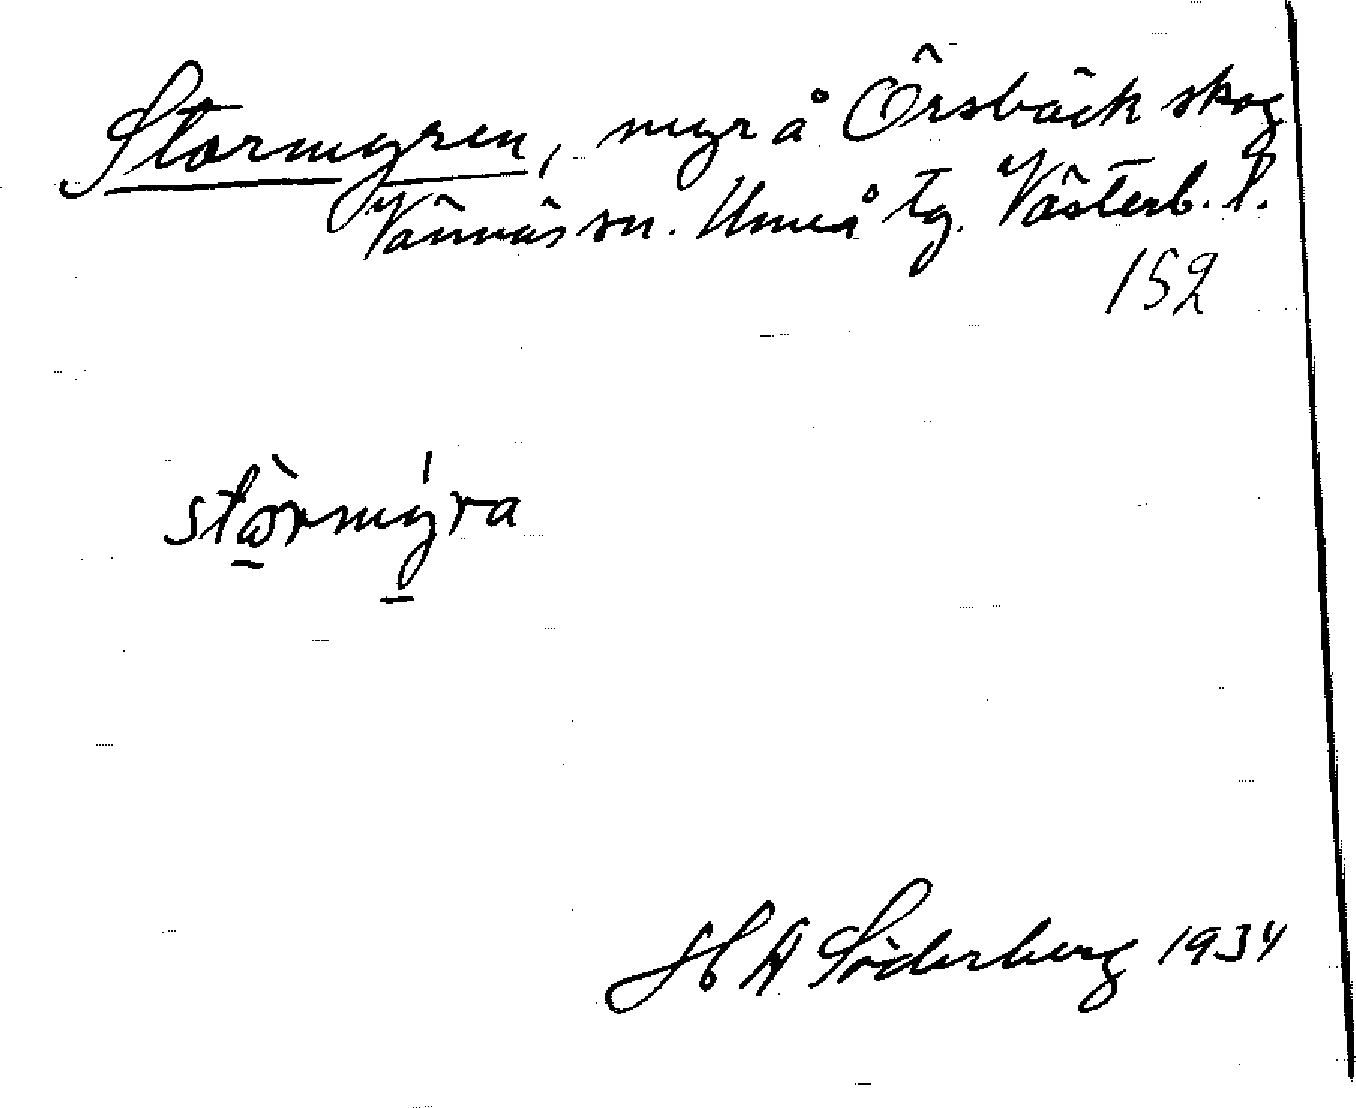 Stormyren, myr å Örsbäck skog
Vännäs sn. Umeå tg. Västerb. l.
152
stòrmýra
H A Söderberg 1934